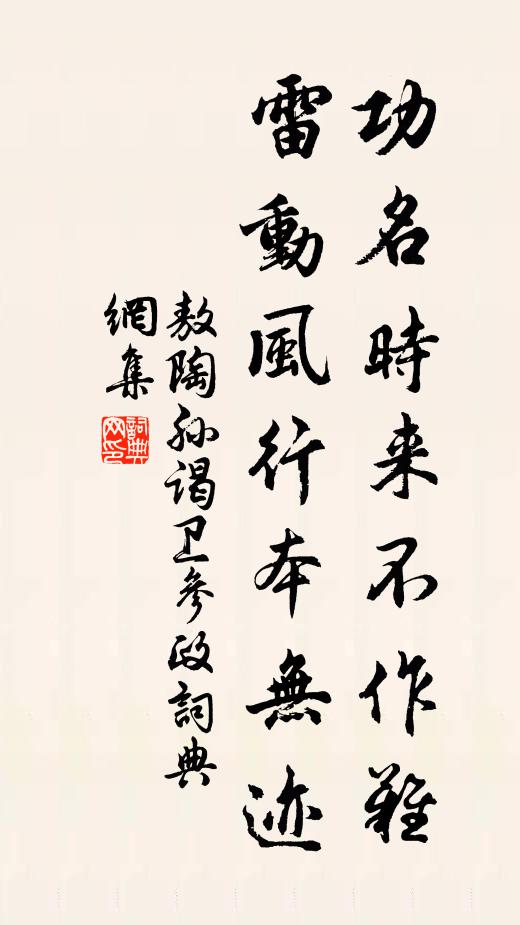 功名時来不作難
雷動風行本無迹
敖陶孙謁卫參政詞典
網集
詞典网印